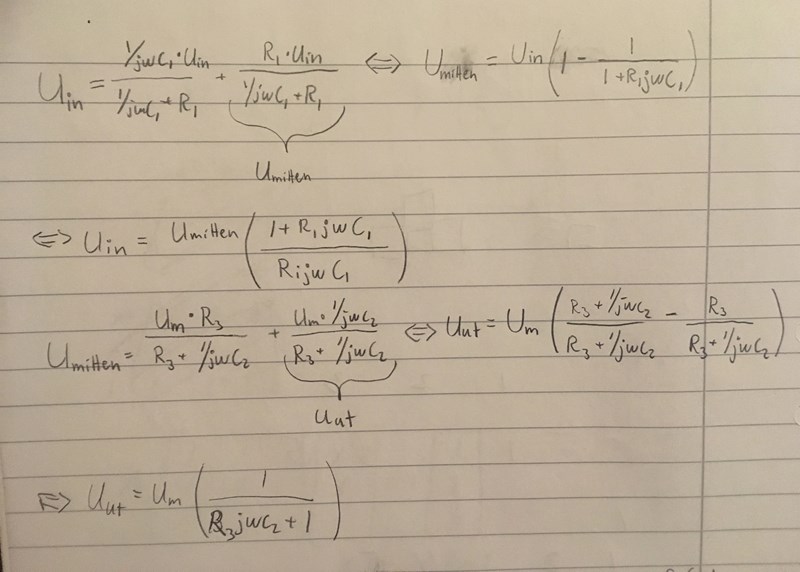 Uin = (1/jwC1 · Uin)/(1/jwC1 + R1) + (R1 · Uin)/(1/jwC1 + R1) ⇔ Umitten = Uin(1 - 1/(1 + R1jwC1))
Umitten
⇔ Uin = Umitten((1 + R1jwC1)/(R1jwC1))
Umitten = (Um · R3)/(R3 + 1/jwC2) + (Um · 1/jwC2)/(R3 + 1/jwC2) ⇔ Uut = Um((R3 + 1/jwC2)/(R3 + 1/jwC2) - R3/(R3 + 1/jwC2))
Uut
⇔ Uut = Um(1/(R3jwC2 + 1))